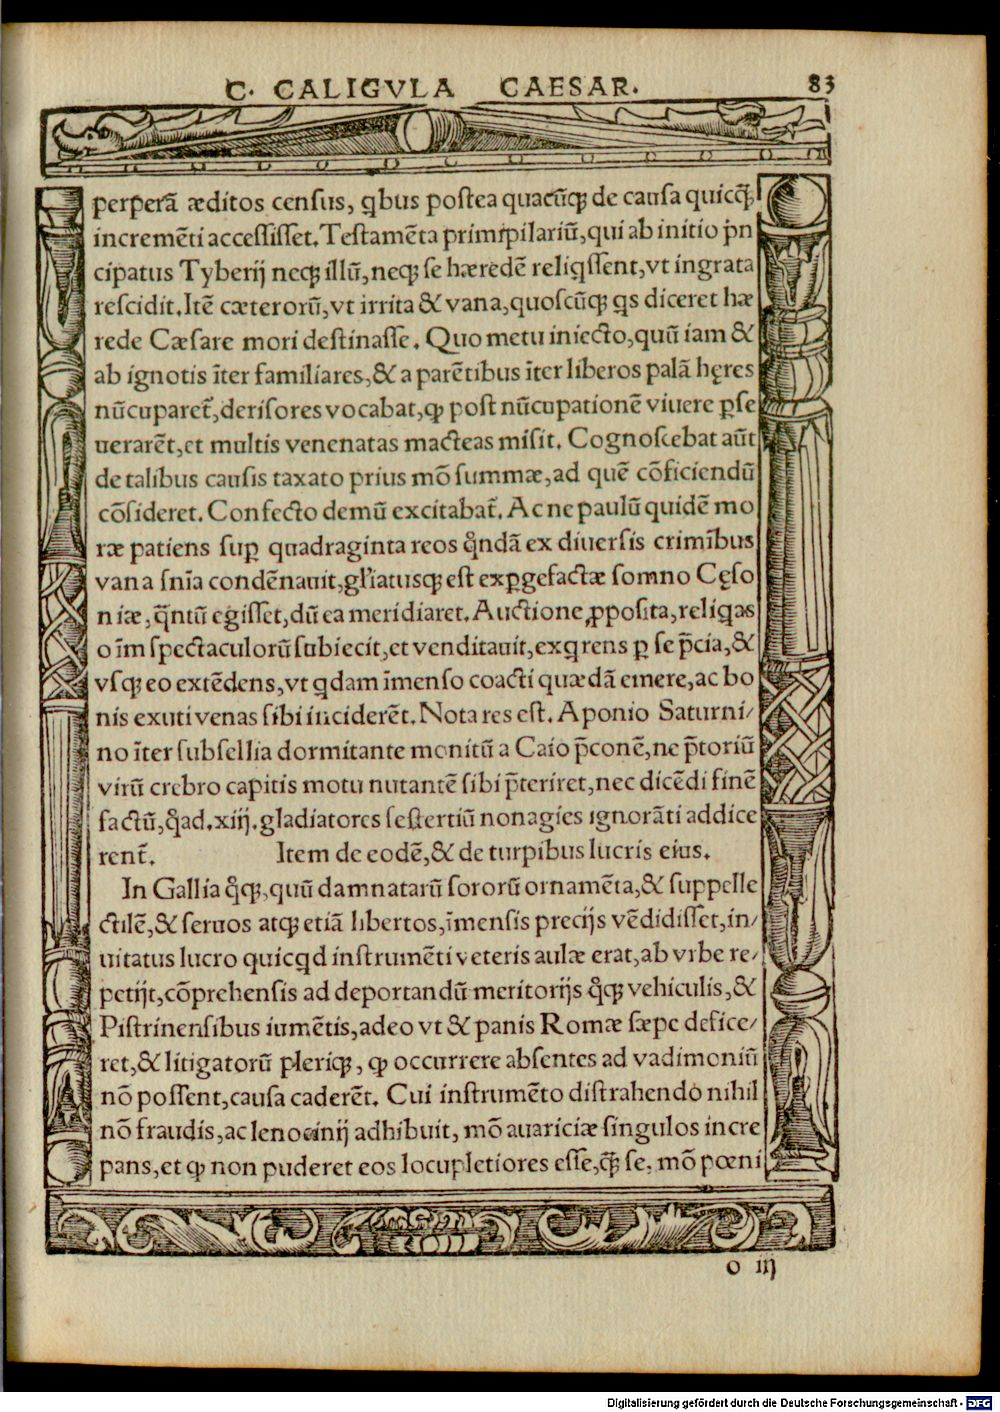 C. CALIGVLA CAESAR. 83
perperã æditos census, ꝗbus postea quacũꝗ de causa quicꝗ̃
incremẽti accessisset. Testamẽta primipilariũ, qui ab initio p̃n
cipatus Tyberij neqꝫ illũ, neqꝫ se hæredẽ reliꝗssent, vt ingrata
rescidit. Itẽ cæterorũ, vt irrita & vana, quoscũqꝫ ꝗs diceret hæ
rede Cæsare mori destinasse. Quo metu iniecto, quũ iam &
ab ignotis ĩter familiares, & a parẽtibus ĩter liberos palã hęres
nũcuparet᷑, derisores vocabat, ꝙ post nũcupationẽ viuere ꝑse
uerarẽt, et multis venenatas macteas misit. Cognoscebat aũt
de talibus causis taxato prius mõ summæ, ad quẽ cõficiendũ
cõsideret. Confecto demũ excitabat᷑. Ac ne paulũ quidẽ mo
ræ patiens suꝑ quadraginta reos ꝗ̃ndã ex diuersis crimĩbus
vana sñia condẽnauit, gl̃iatusqꝫ est exꝑgefactæ somno Cęso
niæ, ꝗ̃ntũ egisset, dũ ea meridiaret. Auctione ꝓposita, reliꝗas
oĩm spectaculorũ subiecit, et venditauit, exꝗrens ꝑ se p̃cia, &
vsqꝫ eo extẽdens, vt ꝗdam ĩmenso coacti quædã emere, ac bo
nis exuti venas sibi inciderẽt. Nota res est. Aponio Saturni/
no ĩter subsellia dormitante monitũ a Caio p̃conẽ, ne p̃toriũ
virũ crebro capitis motu nutantẽ sibi p̃teriret, nec dicẽdi finẽ
factũ, ꝗ̃ad. xiij. gladiatores sestertiũ nonagies ignorãti addice
rent᷑. Item de eodẽ, & de turpibus lucris eius.
In Gallia ꝗ̃qꝫ, quũ damnatarũ sororũ ornamẽta, & suppelle
ctilẽ, & seruos atqꝫ etiã libertos, ĩmensis precijs vẽdidisset, in/
uitatus lucro quicꝗd instrumẽti veteris aulæ erat, ab vrbe re/
petijt, cõprehensis ad deportandũ meritorijs ꝗ̃qꝫ vehiculis, &
Pistrinensibus iumẽtis, adeo vt & panis Romæ sæpe defice/
ret, & litigatorũ pleriqꝫ, ꝙ occurrere absentes ad vadimoniũ
nõ possent, causa caderẽt. Cui instrumẽto distrahendo nihil
nõ fraudis, ac lenocinij adhibuit, mõ auariciæ singulos incre
pans, et ꝙ non puderet eos locupletiores esse, ꝗ̃ se, mõ pœni
O iij
Digitalisierung gefördert durch die Deutsche Forschungsgemeinschaft - DFG